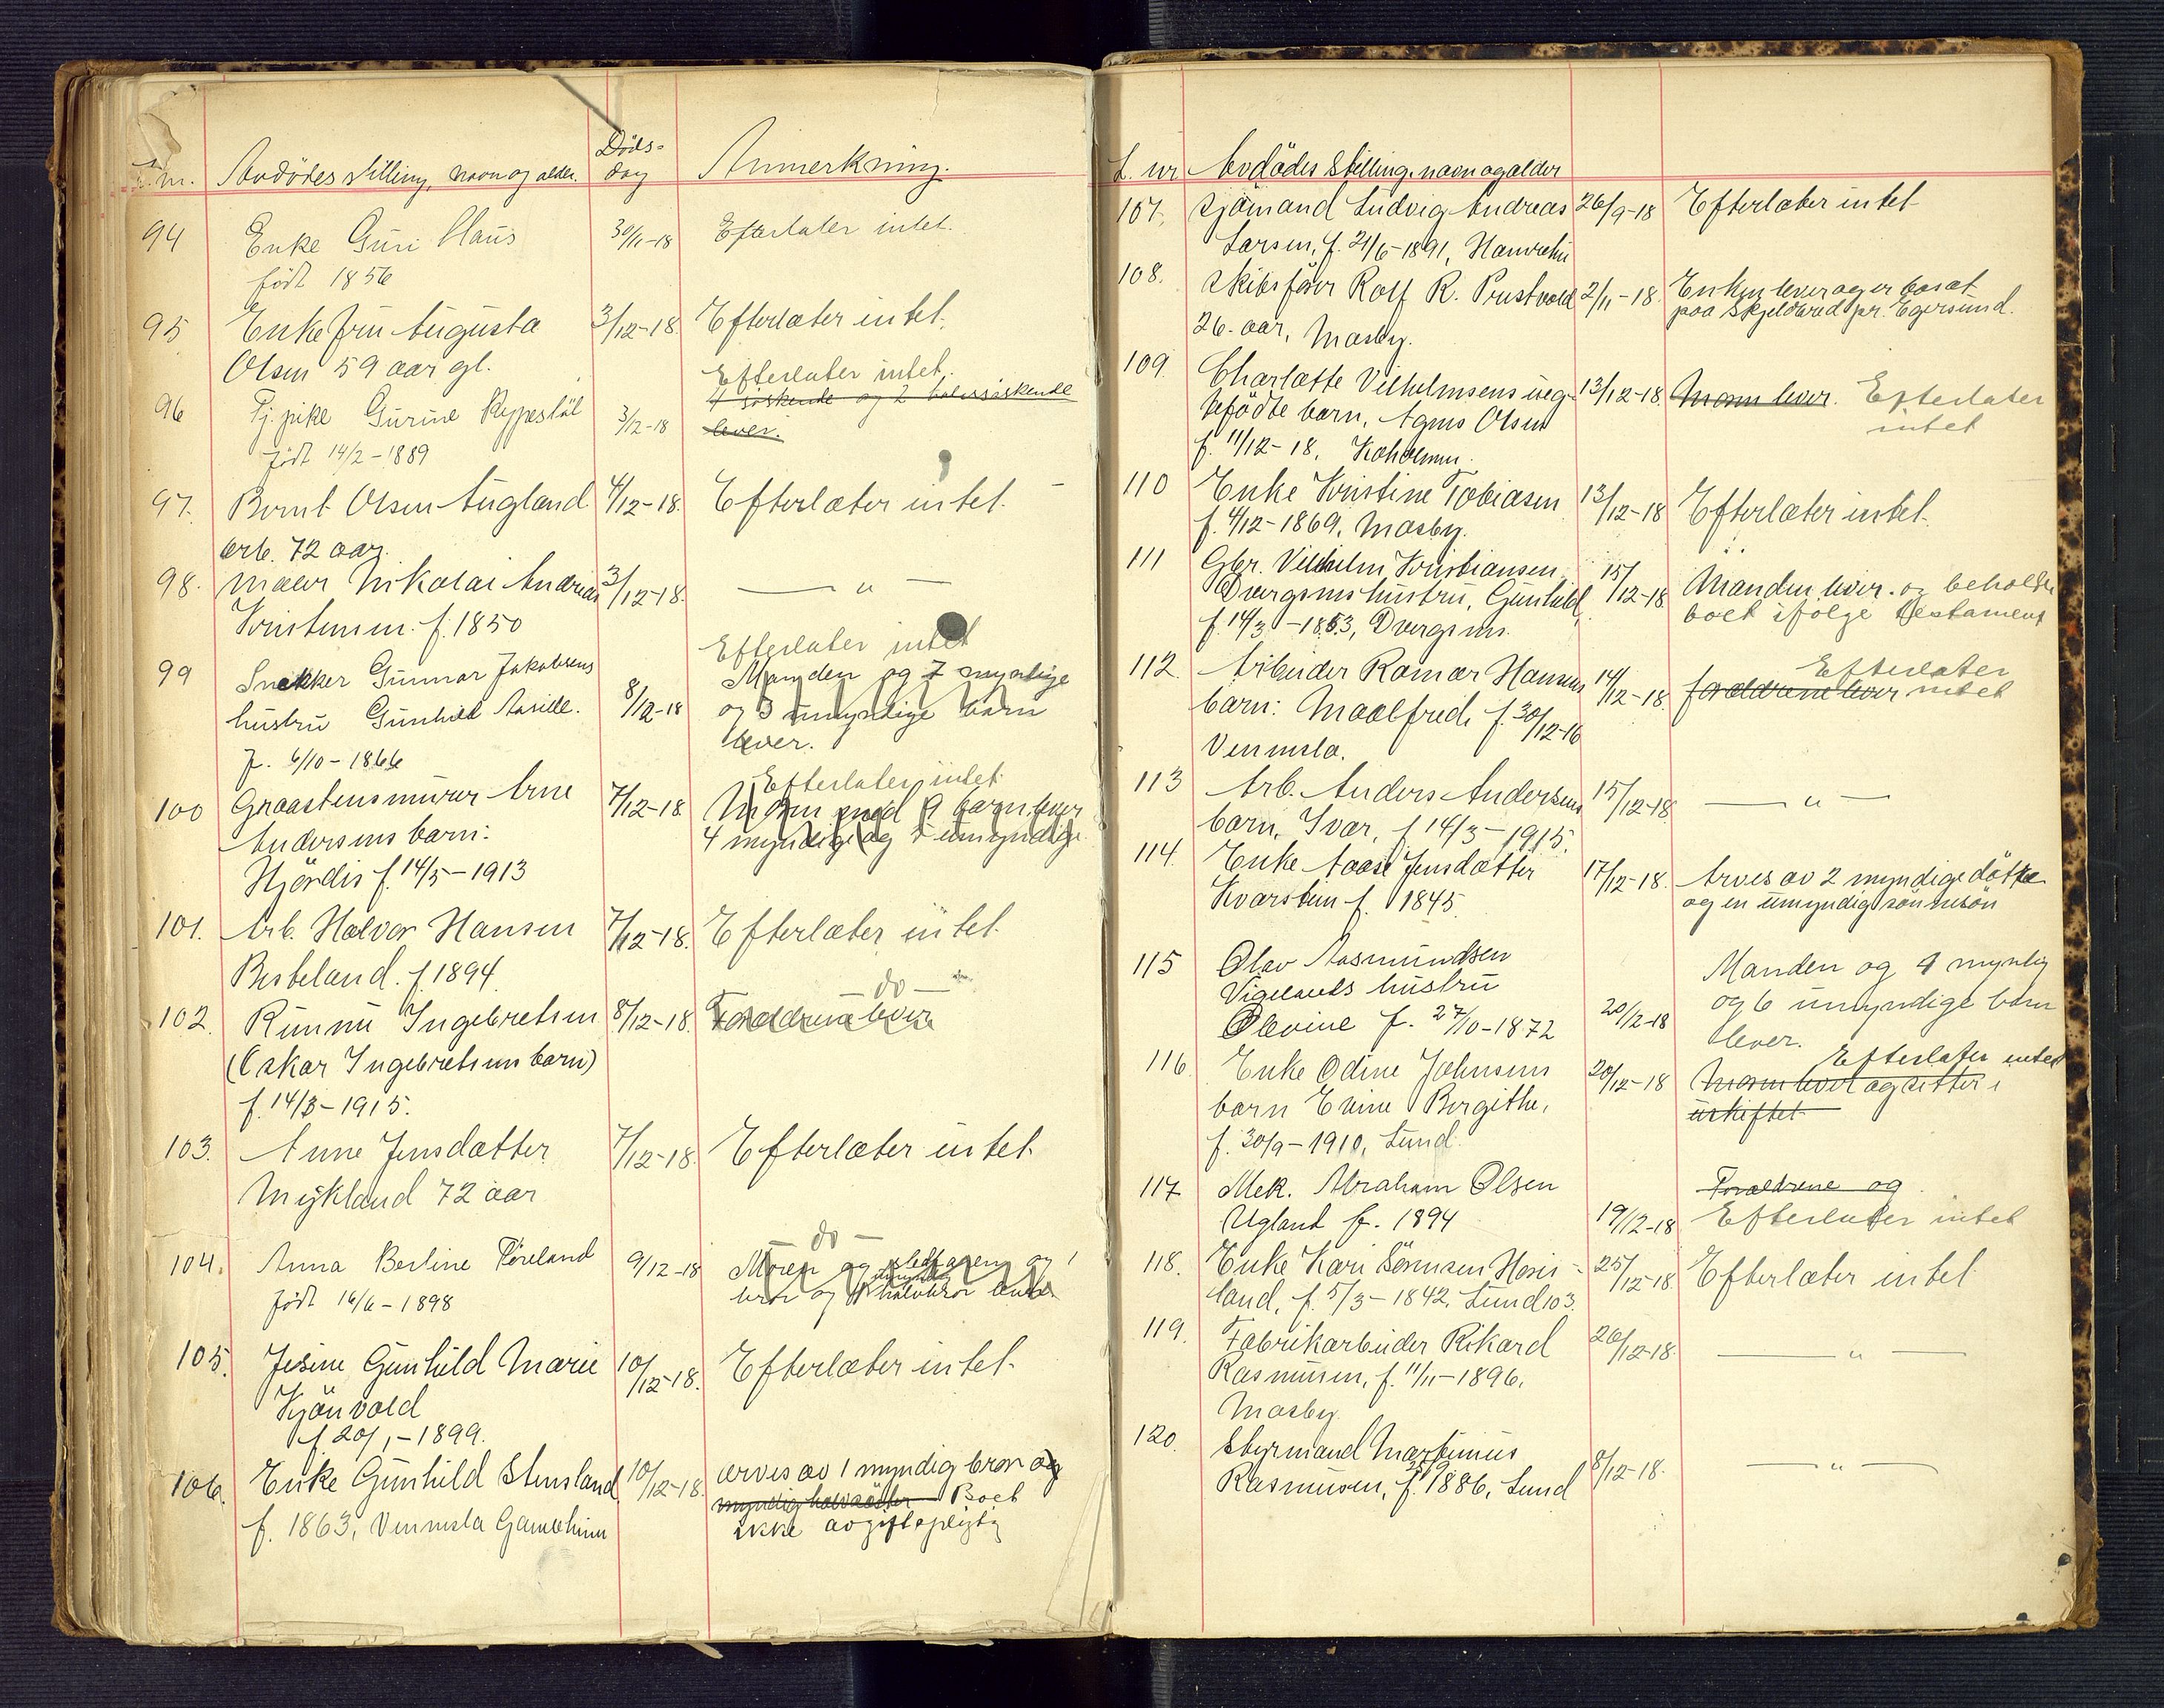 L. nr. Avdödes stilling, navn og alder. Döds-
dag Anmerkning.
94 Enke Guri Claus 30/11-18 Efterlater intet.
født 1856
95 Enkefru Augusta 3/12-18 Efterlater intet.
Olsen 59 aar gl.
96 Tj. pike Gurine Rypestøl 3/12-18 Efterlater intet.
født 14/2-1889
4 søskende og 2 halvsøskende
lever.
97. Bernt Olsen Augland 4/12-18. Efterlater intet.
arb. 72 aar.
98. Maler Nikolai Andreas 3/12-18. — " —
Kristensen. f. 1850
99 Snekker Gunnar Jakobsens 8/12-18 Efterlater intet
hustru Gunhild Aasille.
f. 6/10-1866
Manden og 7 myndige
og 3 umyndige barn
lever.
100 Graastensmurer Arne 7/12-18. Efterlater intet
Andersens barn:
Hjördis f. 14/5-1913
Moren med 9 barn lever
4 myndige og 5 umyndige
101. Arb. Halvor Hansen 7/12-18. Efterlater intet.
Besteland. f. 1894.
102. Runnu Ingebretsen 8/12-18 — do —
(Oskar Ingebretsens barn) Forældrene lever
f. 14/3-1915.
103. Anne Jensdatter 7/12-18. Efterlater intet.
Mykland 72 aar
104. Anna Berline Föreland 9/12-18 — do —
født 16/6-1898
Moren og stedfaren og 1
bror og 1 halvbror lever
105. Jesine Gunhild Marie 10/12-18. Efterlater intet.
Kjönvold
f. 20/1-1899.
106. Enke Gunhild Stensland 10/12-18. arves av 1 myndig bror og
f. 1863, Vennesla Gamlehim
myndig halvsöster Boet
ikke avgiftspligtig
L. nr Avdödes stilling, navn og alder
107. Sjömand Ludvig Andreas 26/9-18 Efterlater intet
Larsen, f. 21/6-1891, Hamrehei
108. Skibsfører Rolf R. Prestvold 2/11-18. Enken lever og er bosat
26 aar, Mosby. paa Skjeldared pr. Egersund.
109. Charlotte Vilhelmsens ueg- 13/12-18. Moren lever. Efterlater
tefödte barn, Agnes Olsen intet
f. 11/12-18, Kaholmen.
110 Enke Kristine Tobiasen 13/12-18 Efterlater intet.
f. 4/12-1869, Mosby.
111 Gbr. Vilhelm Kristiansen 15/12-18 Manden lever. og beholder
Dvergsnes hustru, Gunhild, boet ifölge testament
f. 14/3-1853, Dvergsnes.
112. Arbeider Ramar Hansens 14/12-18. Efterlater
barn: Maalfrid f. 30/12-16 forældrene lever intet
Vennesla.
113 Arb. Anders Andersens 15/12-18 — " —
barn, Ivar, f. 14/3-1915.
114. Enke Aase Jensdatter 17/12-18. Arves av 2 myndige døtre
Kvarstein f. 1845. og en umyndig sönnesön
115 Olav Aasmundsen Manden og 4 myndig
Vigelands hustru og 6 umyndige barn
Olevine f. 27/10-1872 20/12-18 lever.
116. Enke Odine Johnsens 20/12-18 Efterlater intet
barn Evine Birgithe, Moren lever og sitter i
f. 30/9-1910, Lund. uskiftet
117 Mek. Abraham Olsen Forældrene og
Ugland f. 1894 19/12-18 Efterlater intet
118. Enke Kari Sörensen Høis- 25/12-18. Efterlater intet
land, f. 5/3-1842, Lund 103.
119. Fabrikarbeider Rikard 26/12-18. — " —
Rasmusen, f. 11/11-1896,
Mosby.
120. Styrmand Martinius 8/12-18. — " —
Rasmusen, f. 1886, Lund